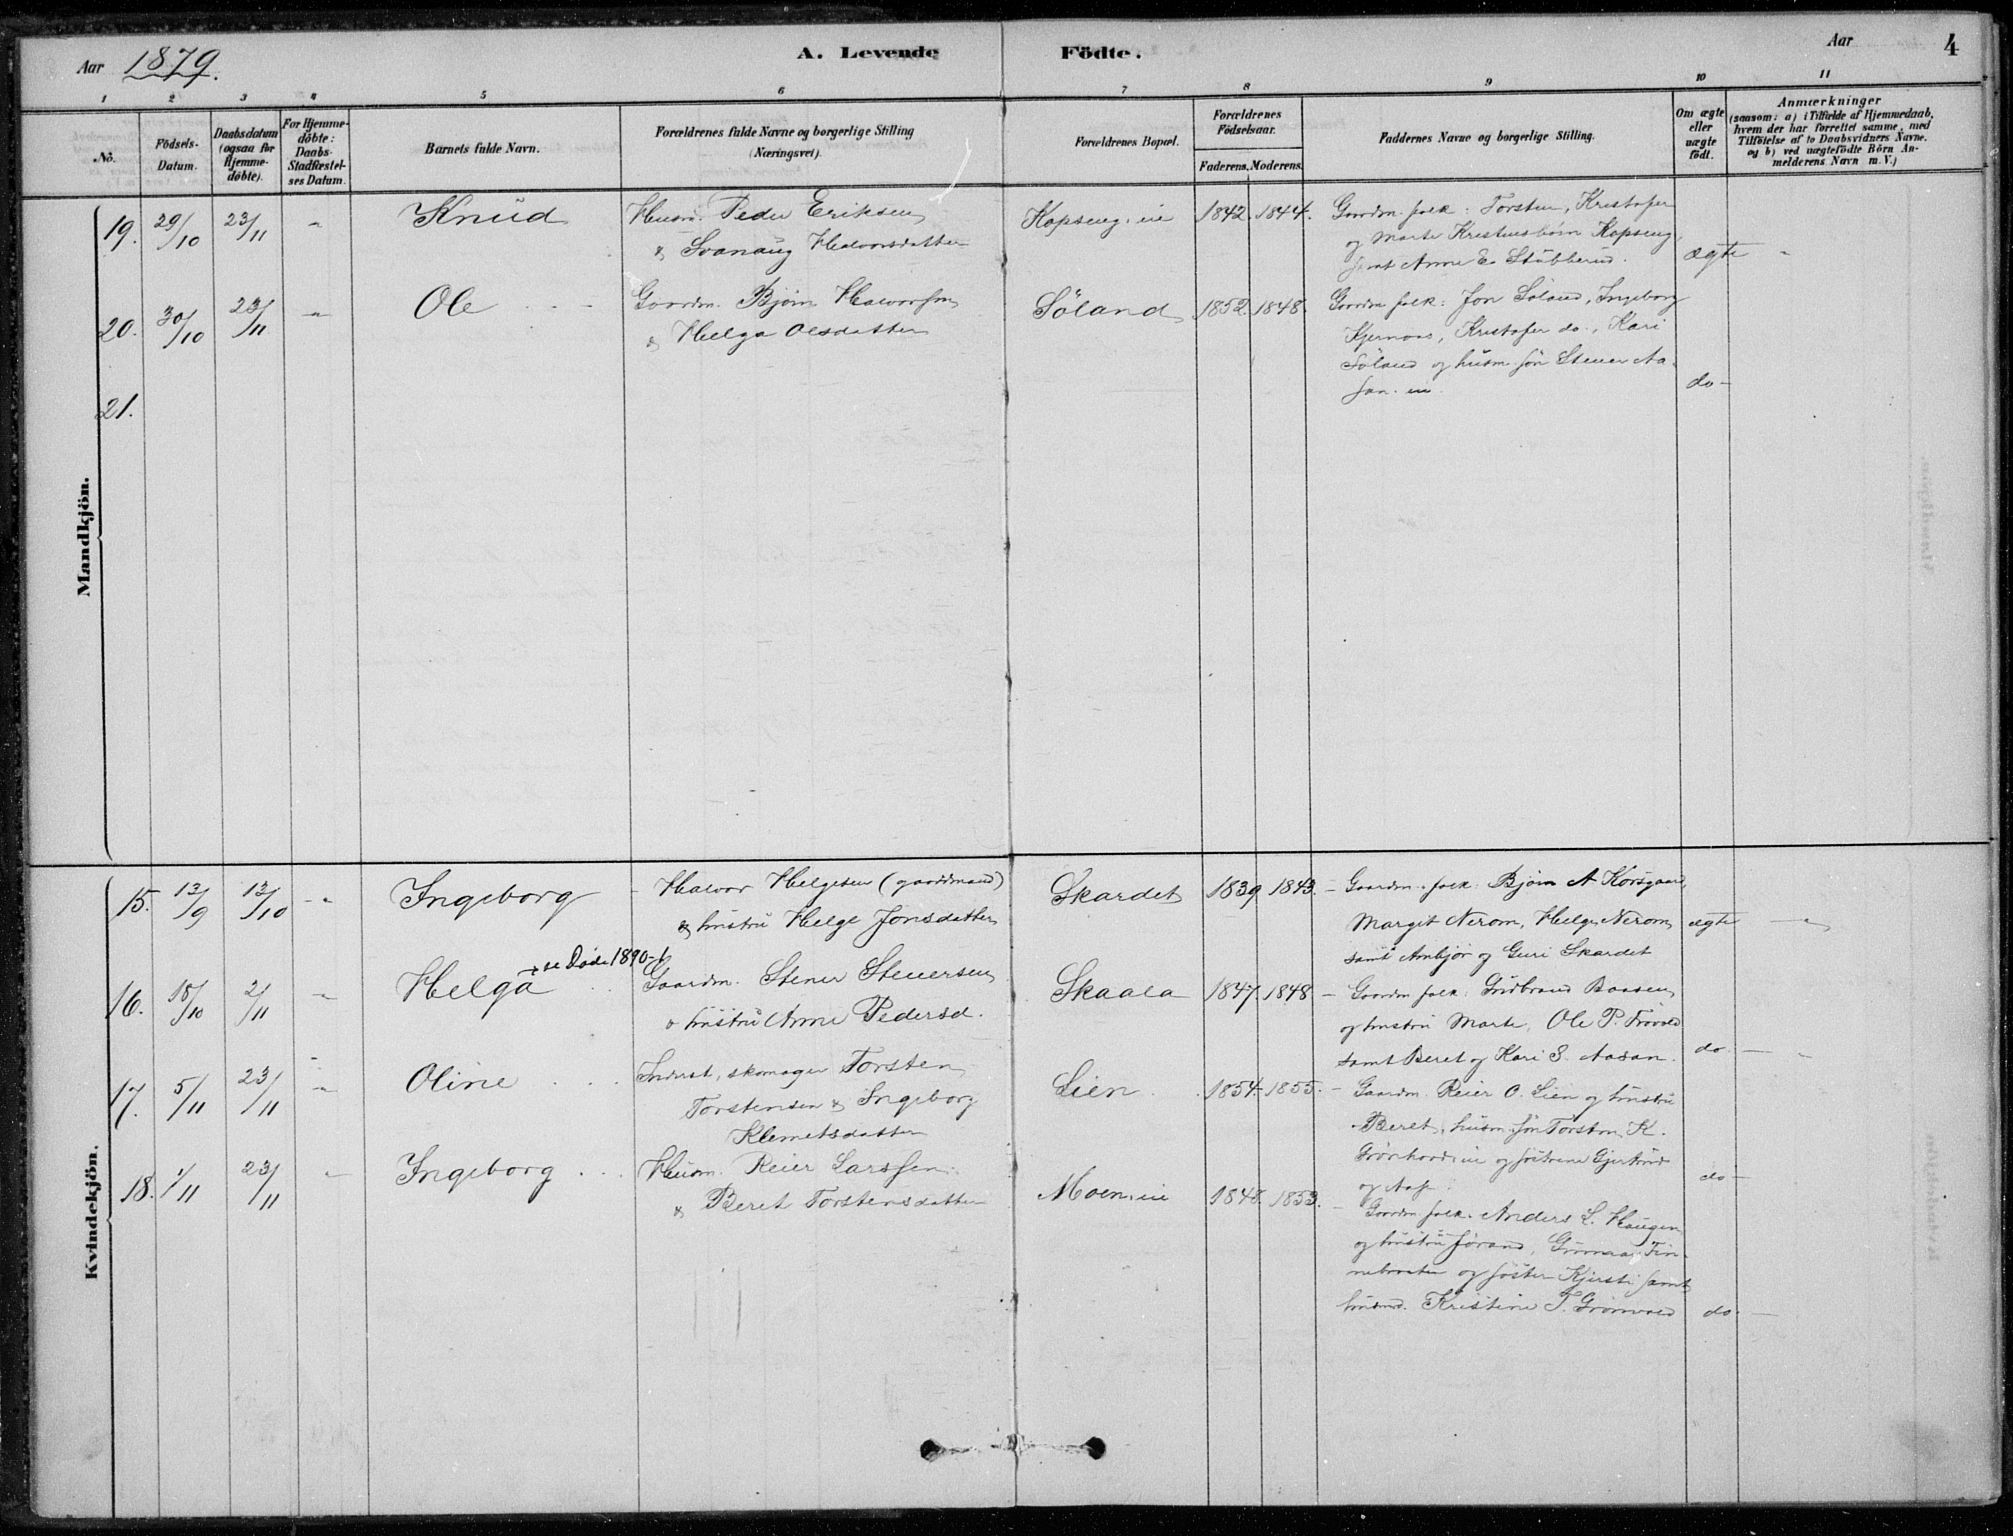 Aar 1879.
A. Levende Födte.
Aar 4
1 2 3 4 5 6 7 8 9 10 11
No.
Födsels-
Datum.
Daabsdatum
(ogsaa for
Hjemme-
döbte).
For Hjemme-
döbte:
Daabs-
Stadfæstel-
ses Datum.
Barnets fulde Navn.
Forældrenes fulde Navne og borgerlige Stilling
(Næringsvei).
Forældrenes Bopæl.
Forældrenes
Födselsaar.
Faderens. Moderens.
Faddernes Navne og borgerlige Stilling.
Om ægte
eller
uægte
födt.
Anmærkninger
(saasom: a) i Tilfælde af Hjemmedaab,
hvem der har forrettet samme, med
Tilföielse af to Daabsvidners Navne.
og b) ved uægtefödte Börn An-
melderens Navn m. V.)
Mandkjön.
19. 29/10 23/11 " Knud
Husm. Peder Eriksen
& Svanaug Halvorsdatter
Kopseng. eie 1842. 1844.
Gaardm. folk: Torsten, Kristofer
og Marte Kristensbørn Kopseng
samt Anne E. Stubberud.
ægte "
20. 30/10 23/11 " Ole
Gaardm. Bjørn Halvorsen
& Helga Olsdatter
Söland 1852. 1848.
Gaardm folk: Jon Söland, Ingeborg
Kjernaas, Kristofer do., Kari
Söland og husm. søn Stener Aa-
san. eie.
do –
21.
Kvindekjön.
15. 13/9 12/10 " Ingeborg
Halvor Helgesen (gaardmand)
& hustru Helge Jonsdatter
Skardet 1839 1843. –
Gaardm. folk: Bjørn A Korsgaard,
Margit Nerom, Helge Nerom,
samt Ambjør og Guri Skardet
ægte "
16. 18/10 2/11 " Helga
+ se Døde 1890-1
Gaardm. Stener Stenersen
& hustru Anne Pedersd.
Skaala 1847. 1848 –
Gaardm folk: Gudbrand Baasen
og hustru Marte, Ole P.
samt Beret og Kari S. Aasan.
do – "
17. 5/11 23/11 " Oline
Inderst, skomager Torsten
Torstensen & Ingeborg
Klemetsdatter
Lien 1854. 1855. –
Gaardm. Reier O. Lien og hustru
Beret, husm. søn Torsten K.
eie og søstrene Gjertrud
og
do –
18. 1/11 23/11 " Ingeborg
Husm. Reier Larssen
& Beret Torstensdatter
Moen. eie 1848. 1853. –
Gaardm folk. Anders L. Haugen
og hustru Jørand, Fin-
nebraaten og søster Kjersti samt
Kristine T. Grønvold
do –